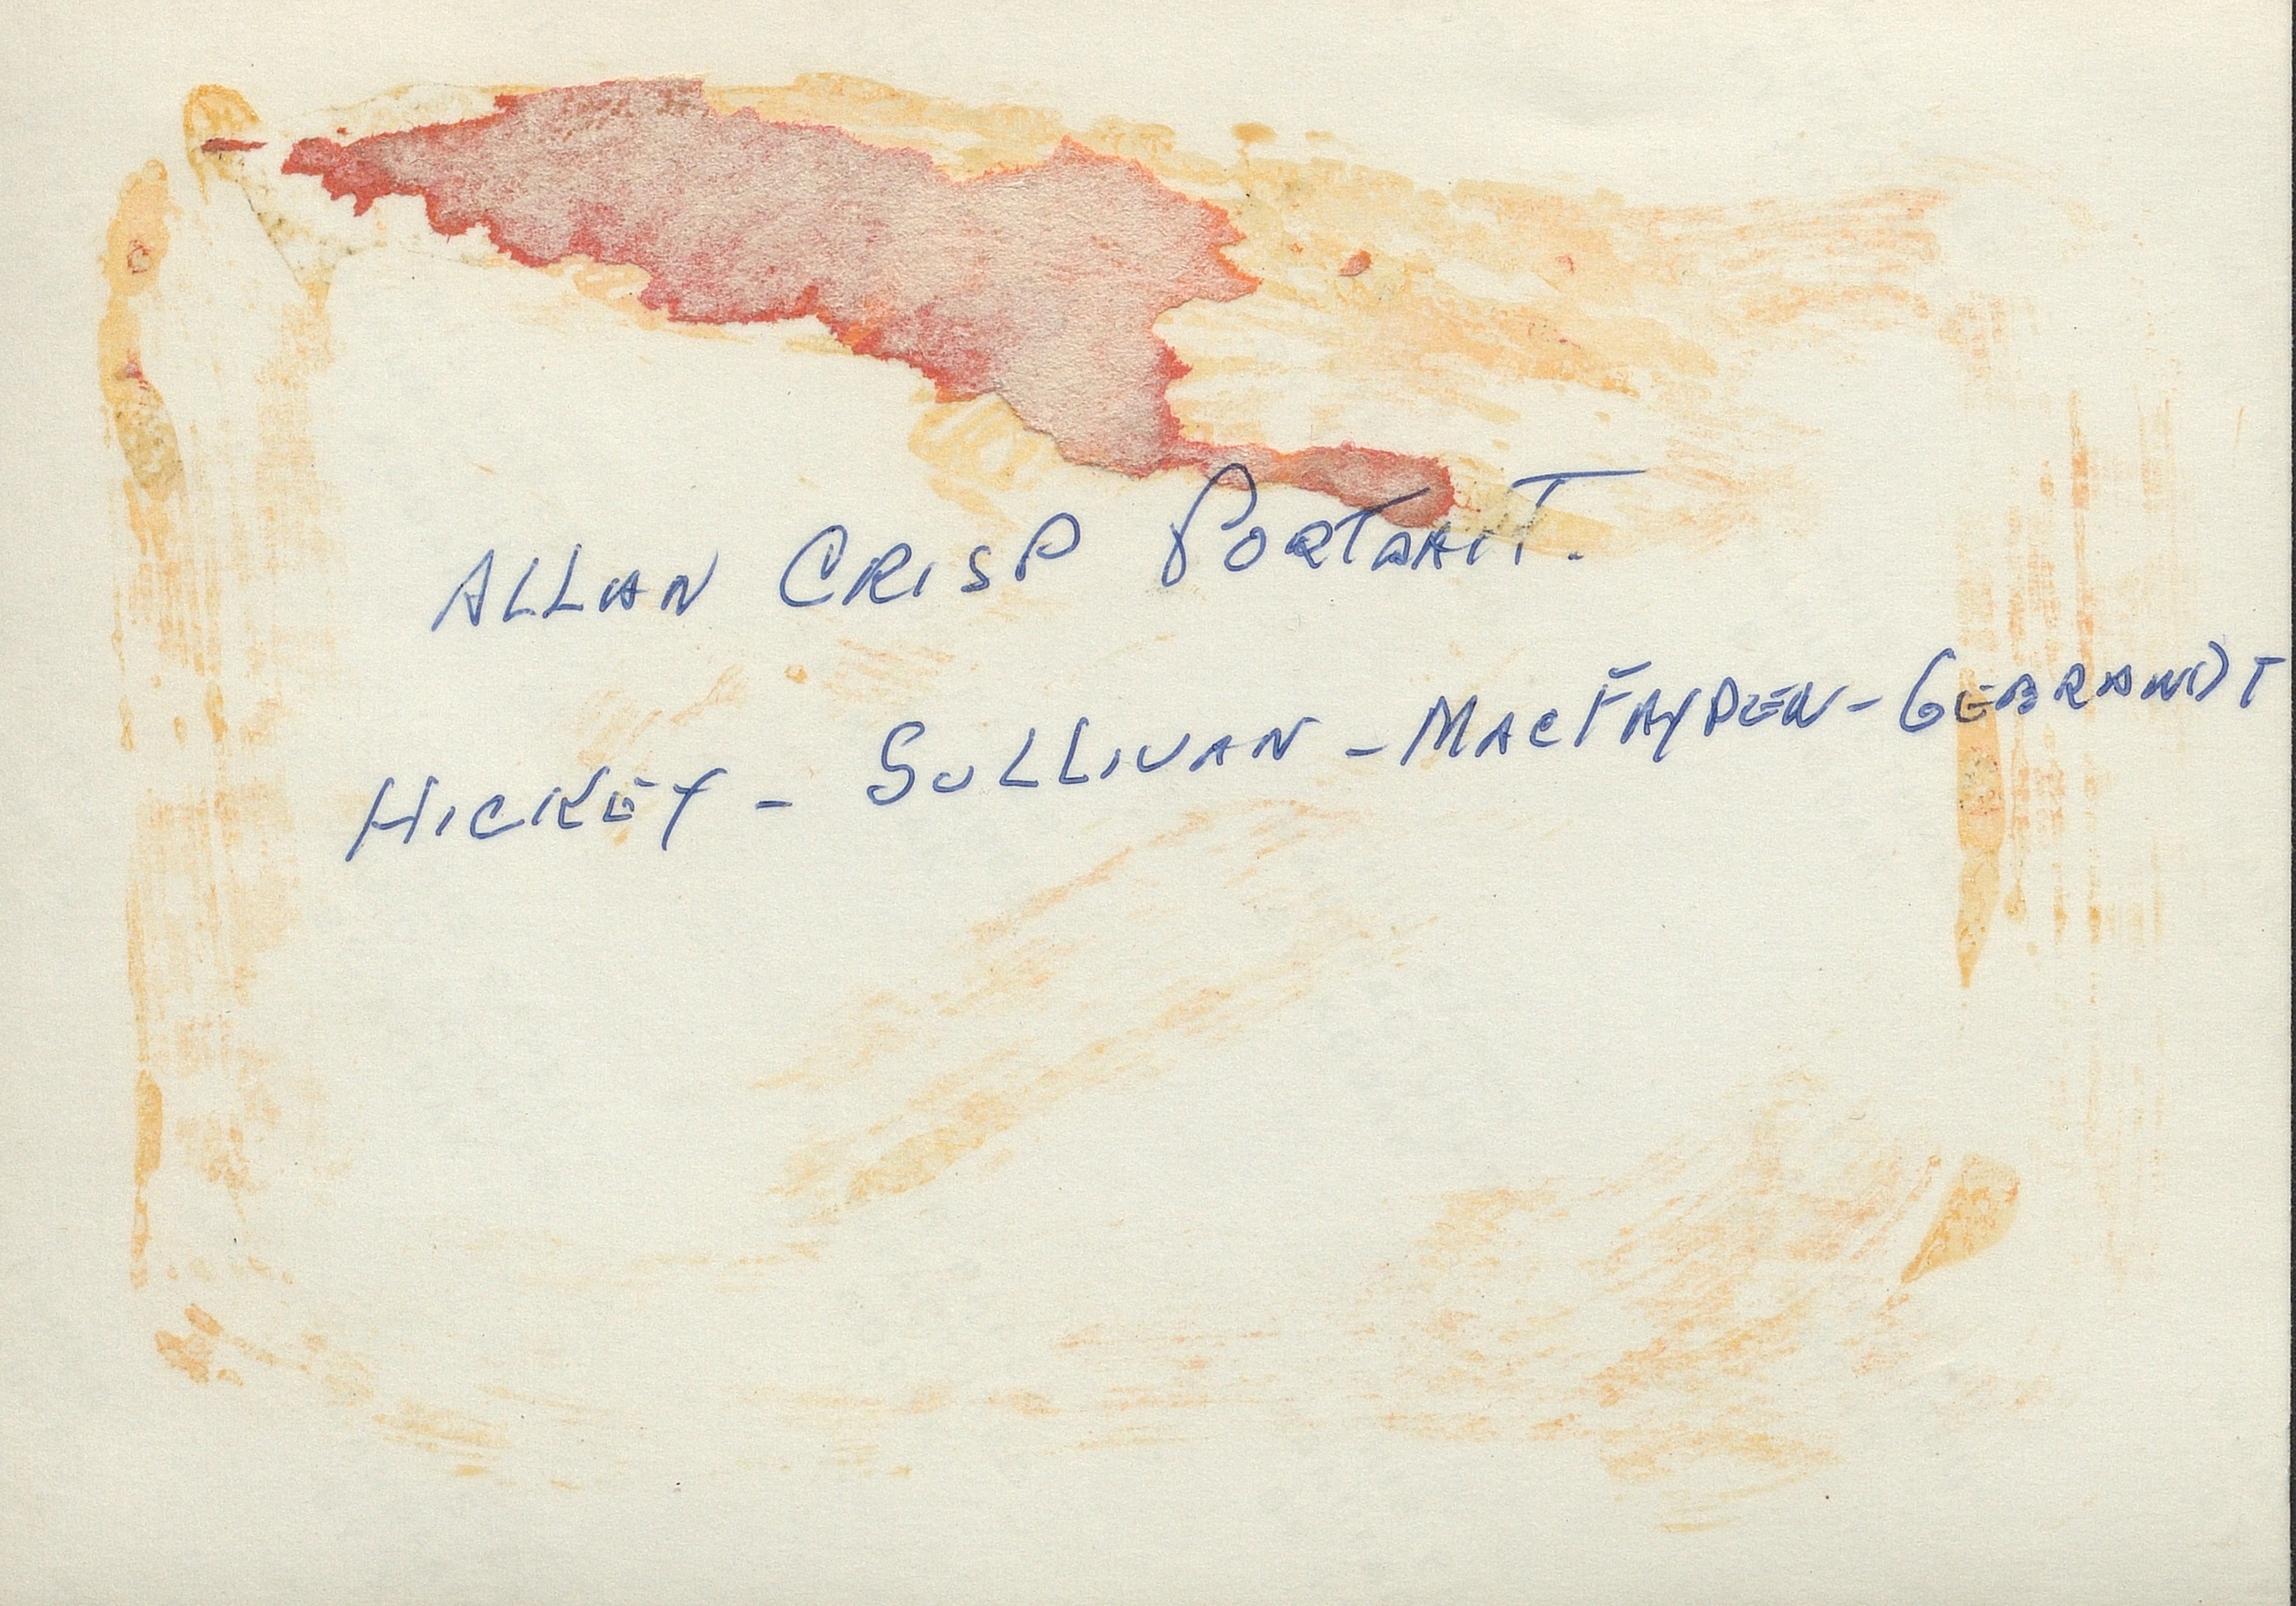 ALLAN CRISP PORTRAIT.
HICKEY - SULLIVAN - MACFAYDEN - GEBRANDT